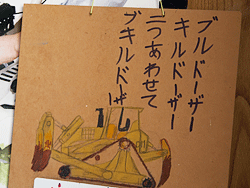 ブルドーザー
キルドーザー
二つあわせて
ブキルドーザー